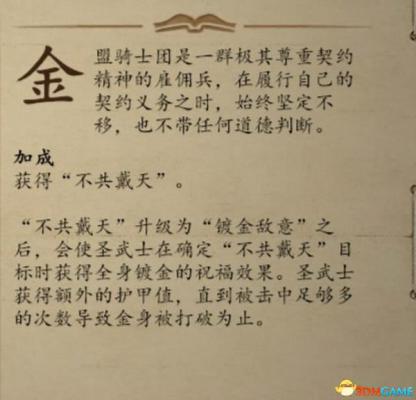 金
盟骑士团是一群极其尊重契约
精神的雇佣兵，在履行自己的
契约义务之时，始终坚定不
移，也不带任何道德判断。
加成
获得“不共戴天”。
“不共戴天”升级为“镀金敌意”之
后，会使圣武士在确定“不共戴天”目
标时获得全身镀金的祝福效果。圣武士
获得额外的护甲值，直到被击中足够多
的次数导致金身被打破为止。
3DMGAME